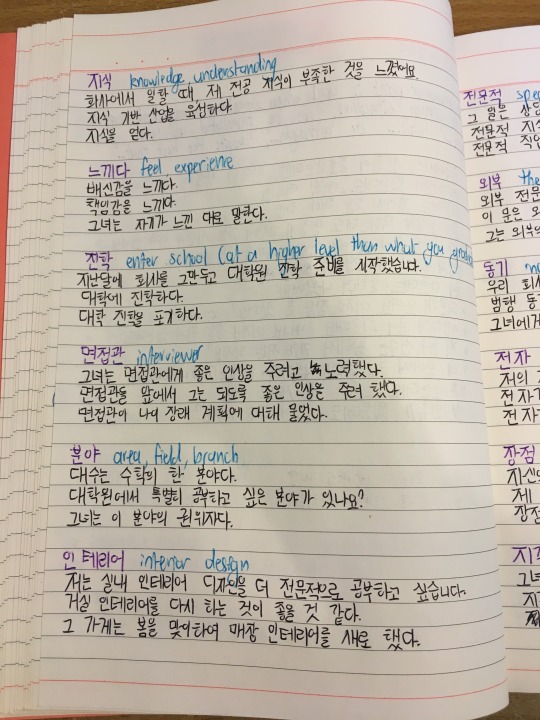 지식 knowledge, understanding
회사에서 일할 때 제 전공 지식이 부족한 것을 느꼈어요
지식 기반 산업을 육성하다
지식을 얻다.
느끼다 feel, experience
배신감을 느끼다.
책임감을 느끼다.
그녀는 자기가 느낀 대로 말한다.
진학 enter school (at a higher level than what you
지난달에 회사를 그만두고 대학원 진학 준비를 시작했습니다.
대학에 진학하다.
대학 진학을 포기하다.
면접관 interviewer
그녀는 면접관에게 좋은 인상을 주려고 노력했다.
면접관들 앞에서 그는 되도록 좋은 인상을 주려 했다.
면접관이 나의 장래 계획에 대해 물었다.
분야 area, field, branch
대수는 수학의 한 분야다.
대학원에서 특별히 공부하고 싶은 분야가 있나요?
그녀는 이 분야의 권위자다.
인테리어 interior design
저는 실내 인테리어 디자인을 더 전문적으로 공부하고 싶습니다.
거실 인테리어를 다시 하는 것이 좋을 것 같다.
그 가게는 봄을 맞이하여 매장 인테리어를 새로 했다.
전문적
그 일은
전문적
전문적
외부
외부 전문
이 문은
그는 외부
동기
우리
범행
그녀에게
전자
저의
전자
전자
장점
자신
제
장점